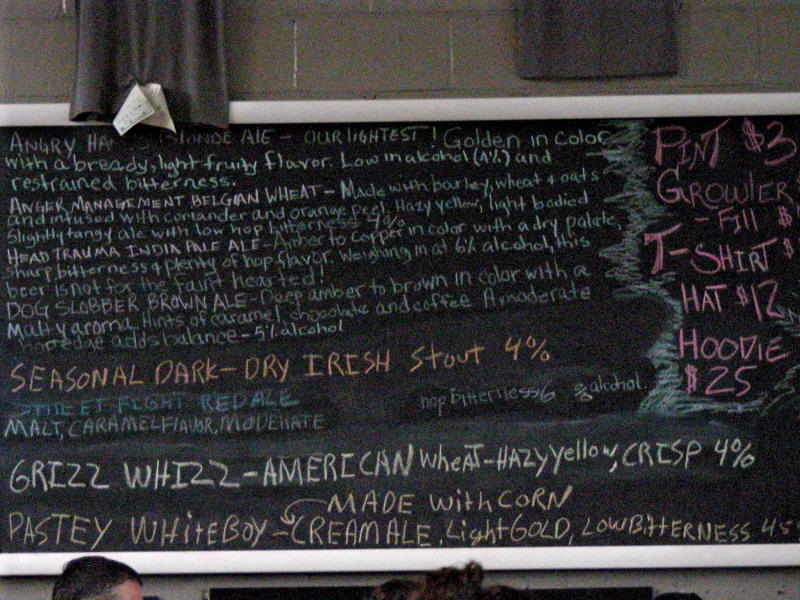 ANGRY BLONDE ALE - OUR LIGHTEST! Golden in color
with a bready, light fruity flavor. Low in alcohol (4%) and
restrained bitterness.
ANGER MANAGEMENT BELGIAN WHEAT - Made with barley, wheat & oats
and infused with coriander and orange peel. Hazy yellow, light bodied
slightly tangy ale with low hop bitterness - 4%
HEAD TRAUMA INDIA PALE ALE - Amber to copper in color with a dry palate,
sharp bitterness & plenty of hop flavor. Weighing in at 6% alcohol, this
beer is not for the faint hearted!
DOG SLOBBER BROWN ALE - Deep amber to brown in color with a
Malty aroma. Hints of caramel, chocolate and coffee. A moderate
edge adds balance - 5% alcohol
SEASONAL DARK - DRY IRISH Stout 4%
STREET FIGHT RED ALE
MALT, CARAMEL FLAVOR, MODERATE hop bitterness alcohol.
GRIZZ WHIZZ - AMERICAN wheAT - HAZY Yellow, CRISP 4%
MADE with CORN
PASTEY WHiteBoy - CREAM ALE, Light GOLD, LOW BitTERNESS
PINT $3
GROWLER
- Fill $
T-SHIRT $
HAT $12
HOODIE
$25